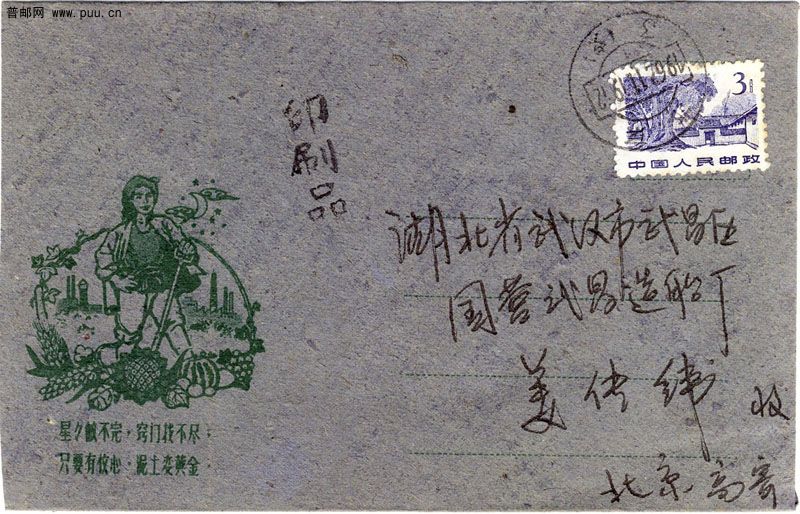 普邮网 www.puu.cn
1962.11.19.12
3
中国人民邮政
印刷品
湖北省武汉市武昌区
国营武昌造船厂
姜传纬 收
北京高寄
星多数不完，窍门找不尽；
只要有决心，泥土变黄金。